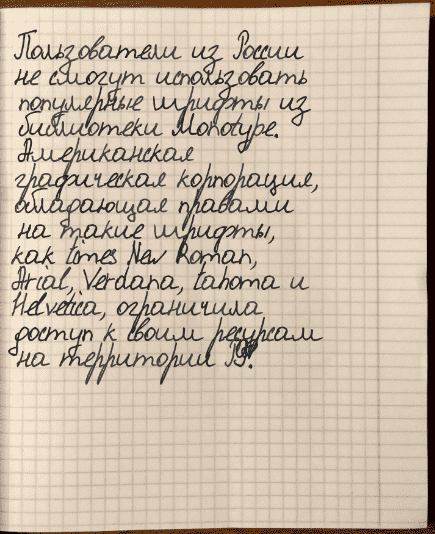 Пользователи из России
не смогут использовать
популярные шрифты из
библиотеки Monotype.
Американская
графическая корпорация,
обладающая правами
на такие шрифты,
как times New Roman,
Arial, Verdana, tahoma и
Helvetica, ограничила
доступ к своим ресурсам
на территории РФ.